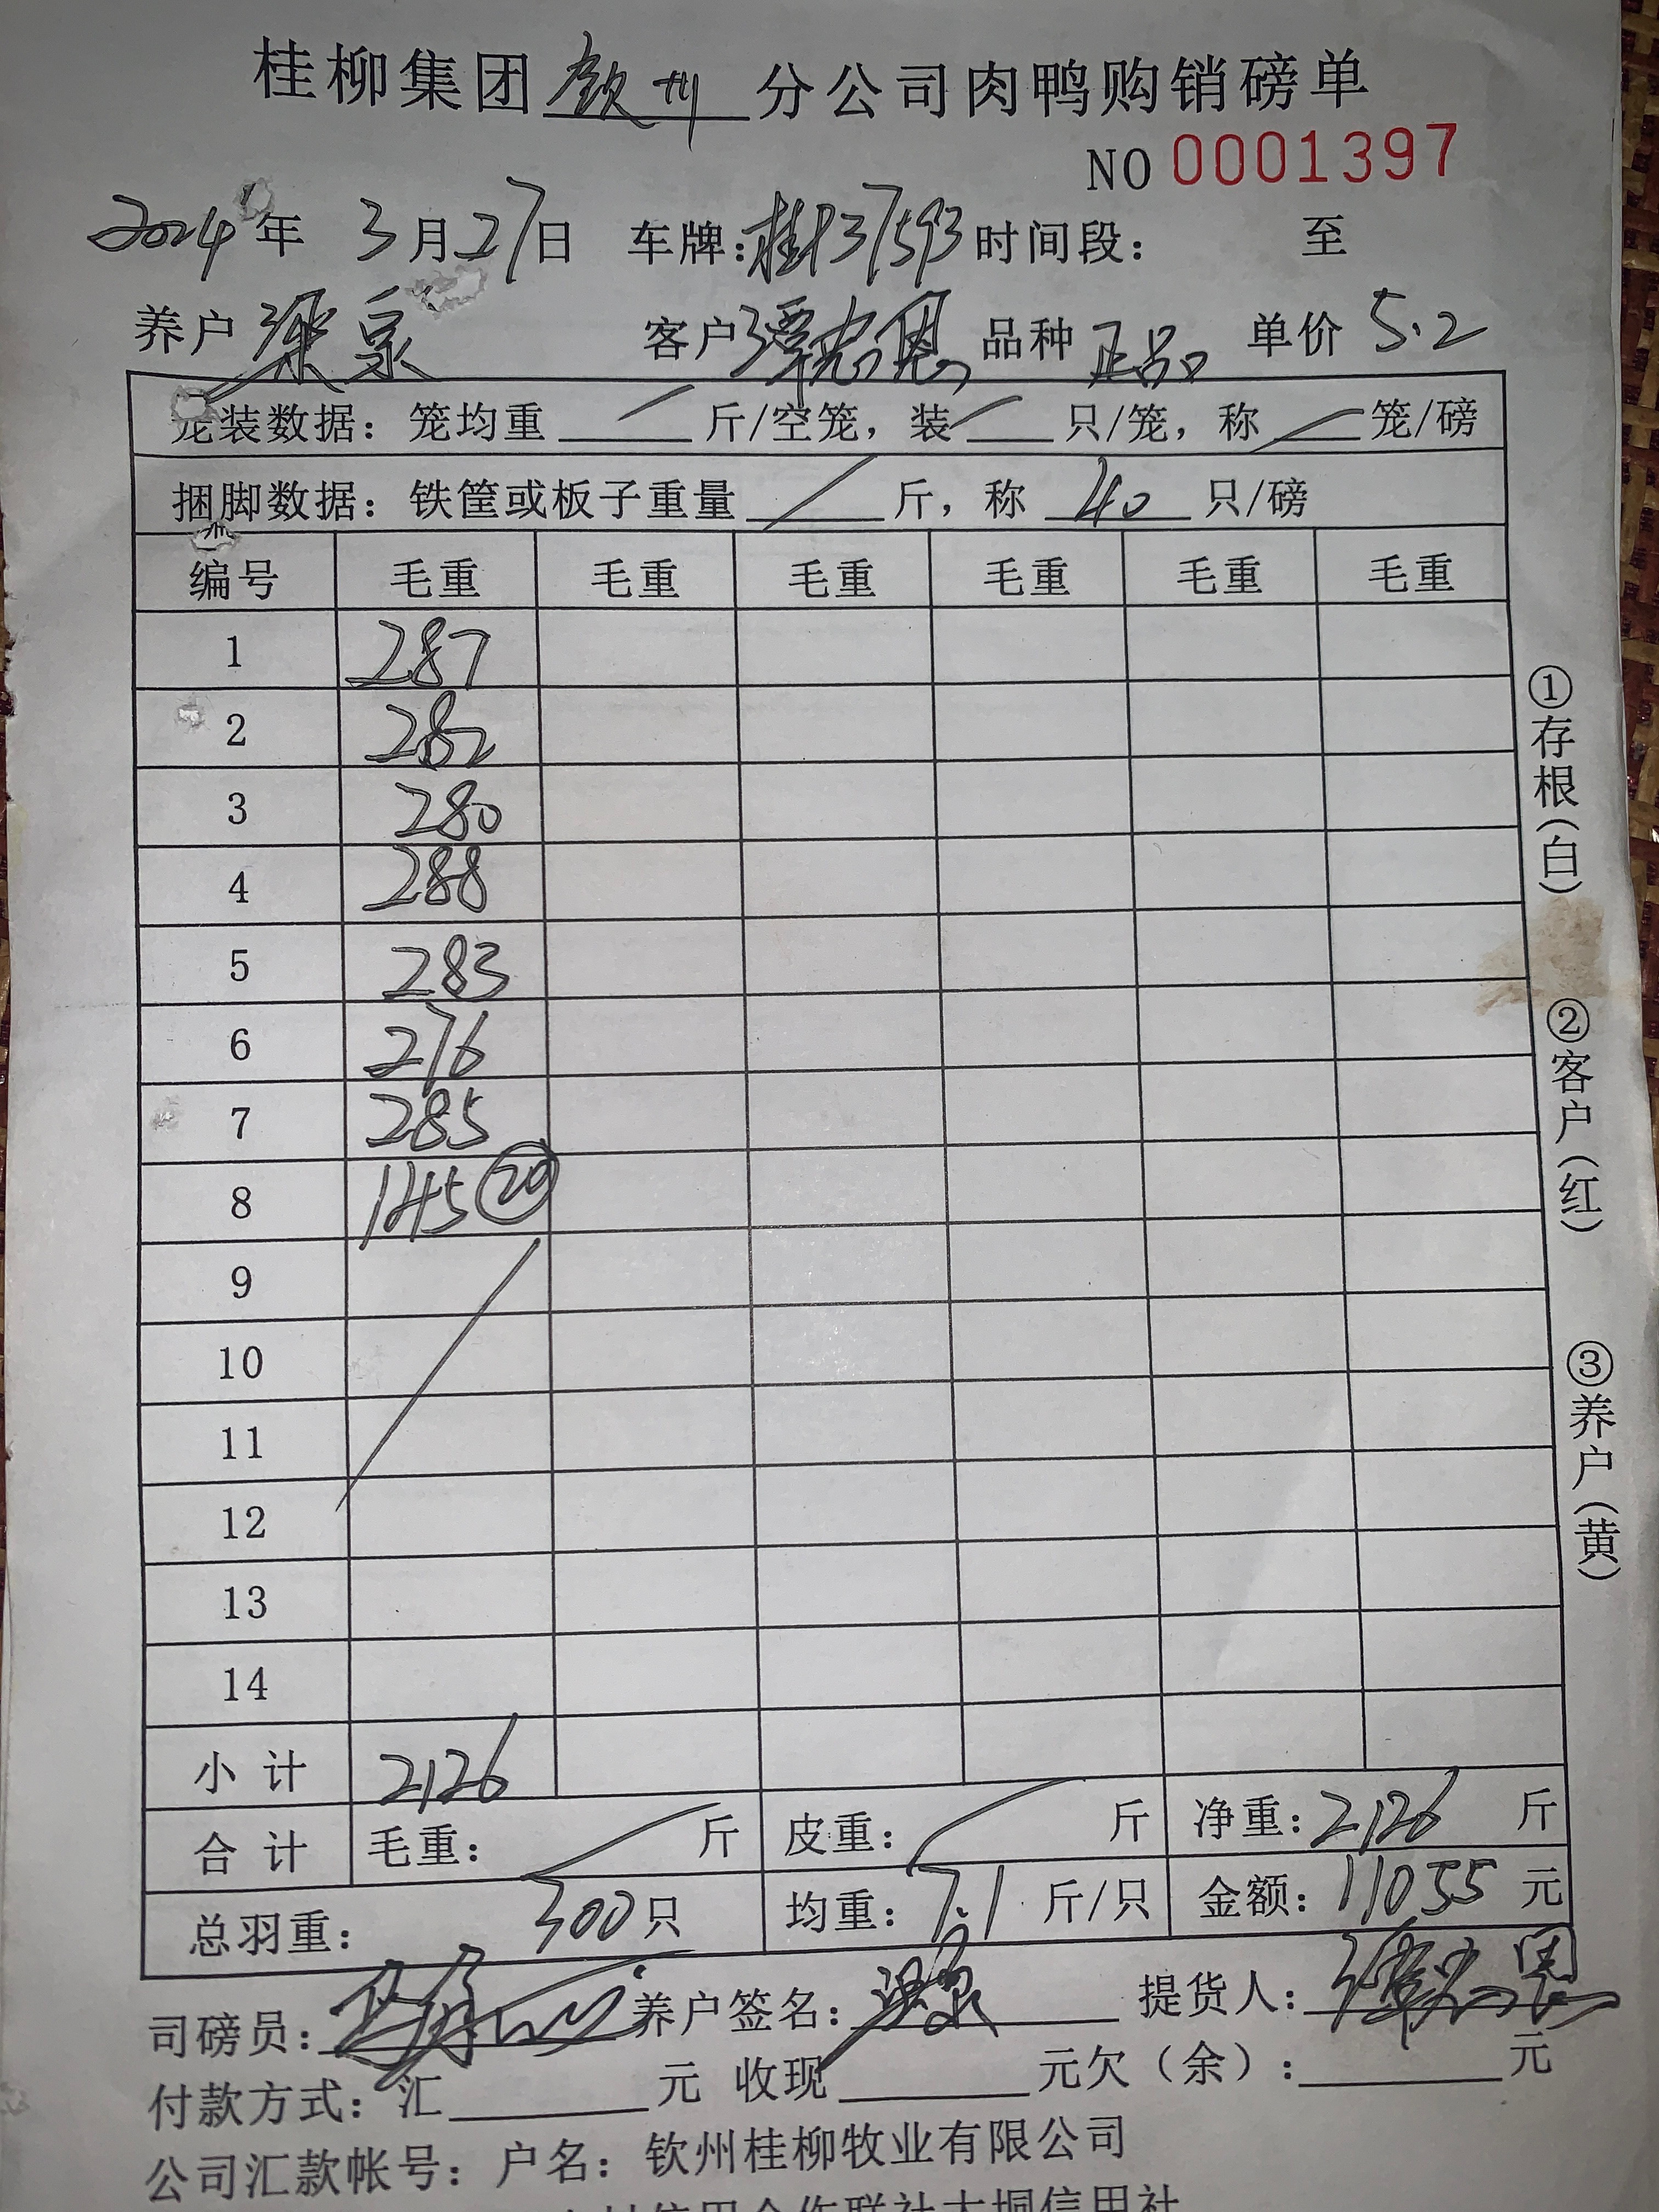 桂柳集团钦州分公司肉鸭购销磅单
NO 0001397
2024年 3月27日 车牌:桂P37593 时间段: 至
养户 梁泉 客户 谭忠恩 品种 正品 单价 5.2
笼装数据: 笼均重 / 斤/空笼, 装 / 只/笼, 称 / 笼/磅
捆脚数据: 铁筐或板子重量 / 斤, 称 40 只/磅
编号 毛重 毛重 毛重 毛重 毛重 毛重
1 287
2 282
3 280
4 288
5 283
6 276
7 285
8 145 ⑳
9
10
11
12
13
14
小 计 2126
合 计 毛重: / 斤 皮重: / 斤 净重: 2126 斤
总羽重: 300只 均重: 7.1 斤/只 金额: 11055 元
司磅员: 养户签名: 梁泉 提货人: 谭忠恩
付款方式: 汇 元 收现 元欠(余): 元
公司汇款帐号: 户名: 钦州桂柳牧业有限公司
①存根(白)
②客户(红)
③养户(黄)